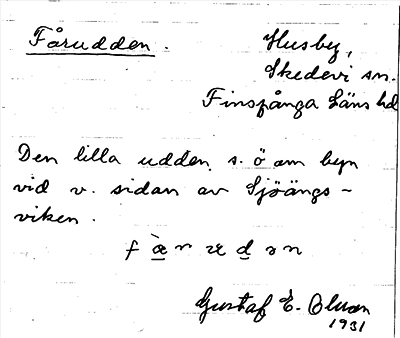 Fårudden.
Husby,
Skedevi sn.
Finspånga läns hd
Den lilla udden s. ö om byn
vid v. sidan av Sjöängs-
viken.
Gustaf E.
1931